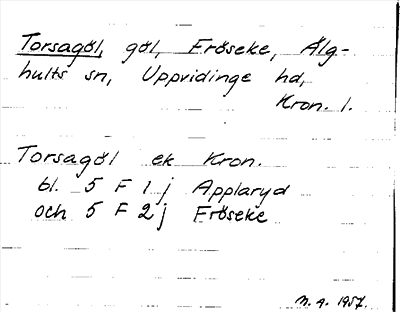 Torsagöl, göl, Fröseke, Älg-
hults sn, Uppvidinge hd,
Kron. l.
Torsagöl ek Kron.
bl. 5 F 1 j Applaryd
och 5 F 2 j Fröseke
M. A. 1957.